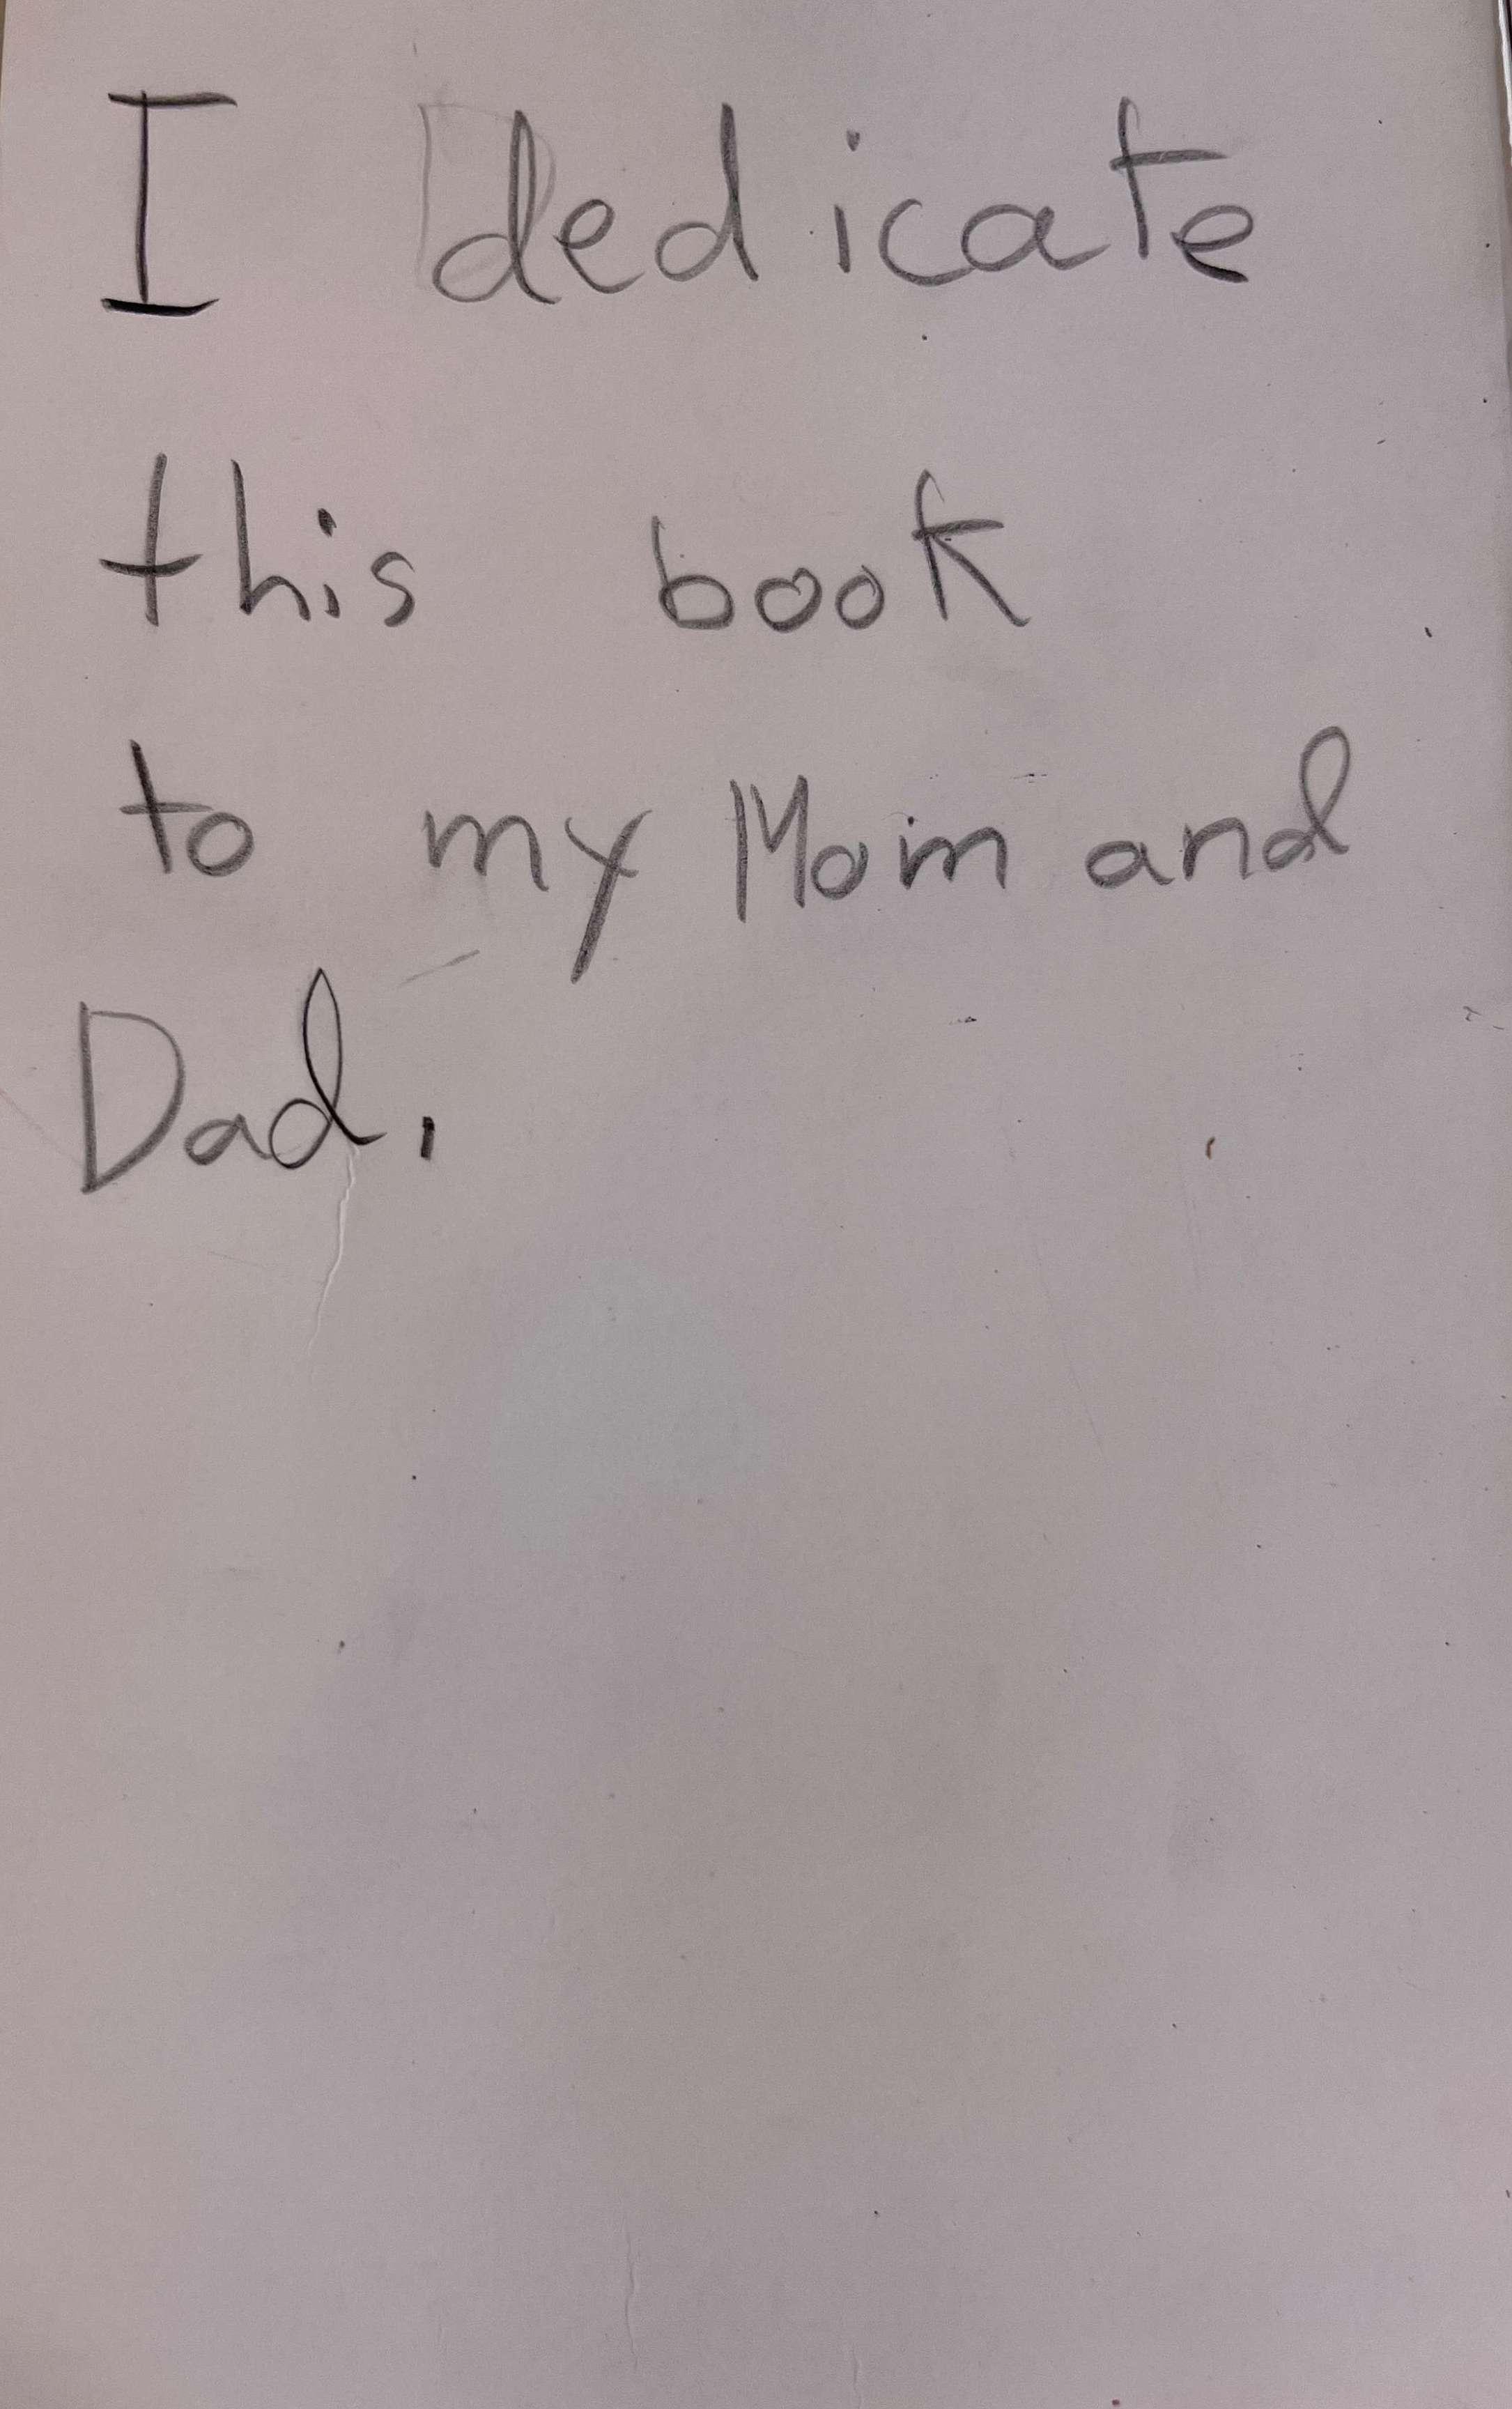 I dedicate
this book
to my Mom and
Dad.